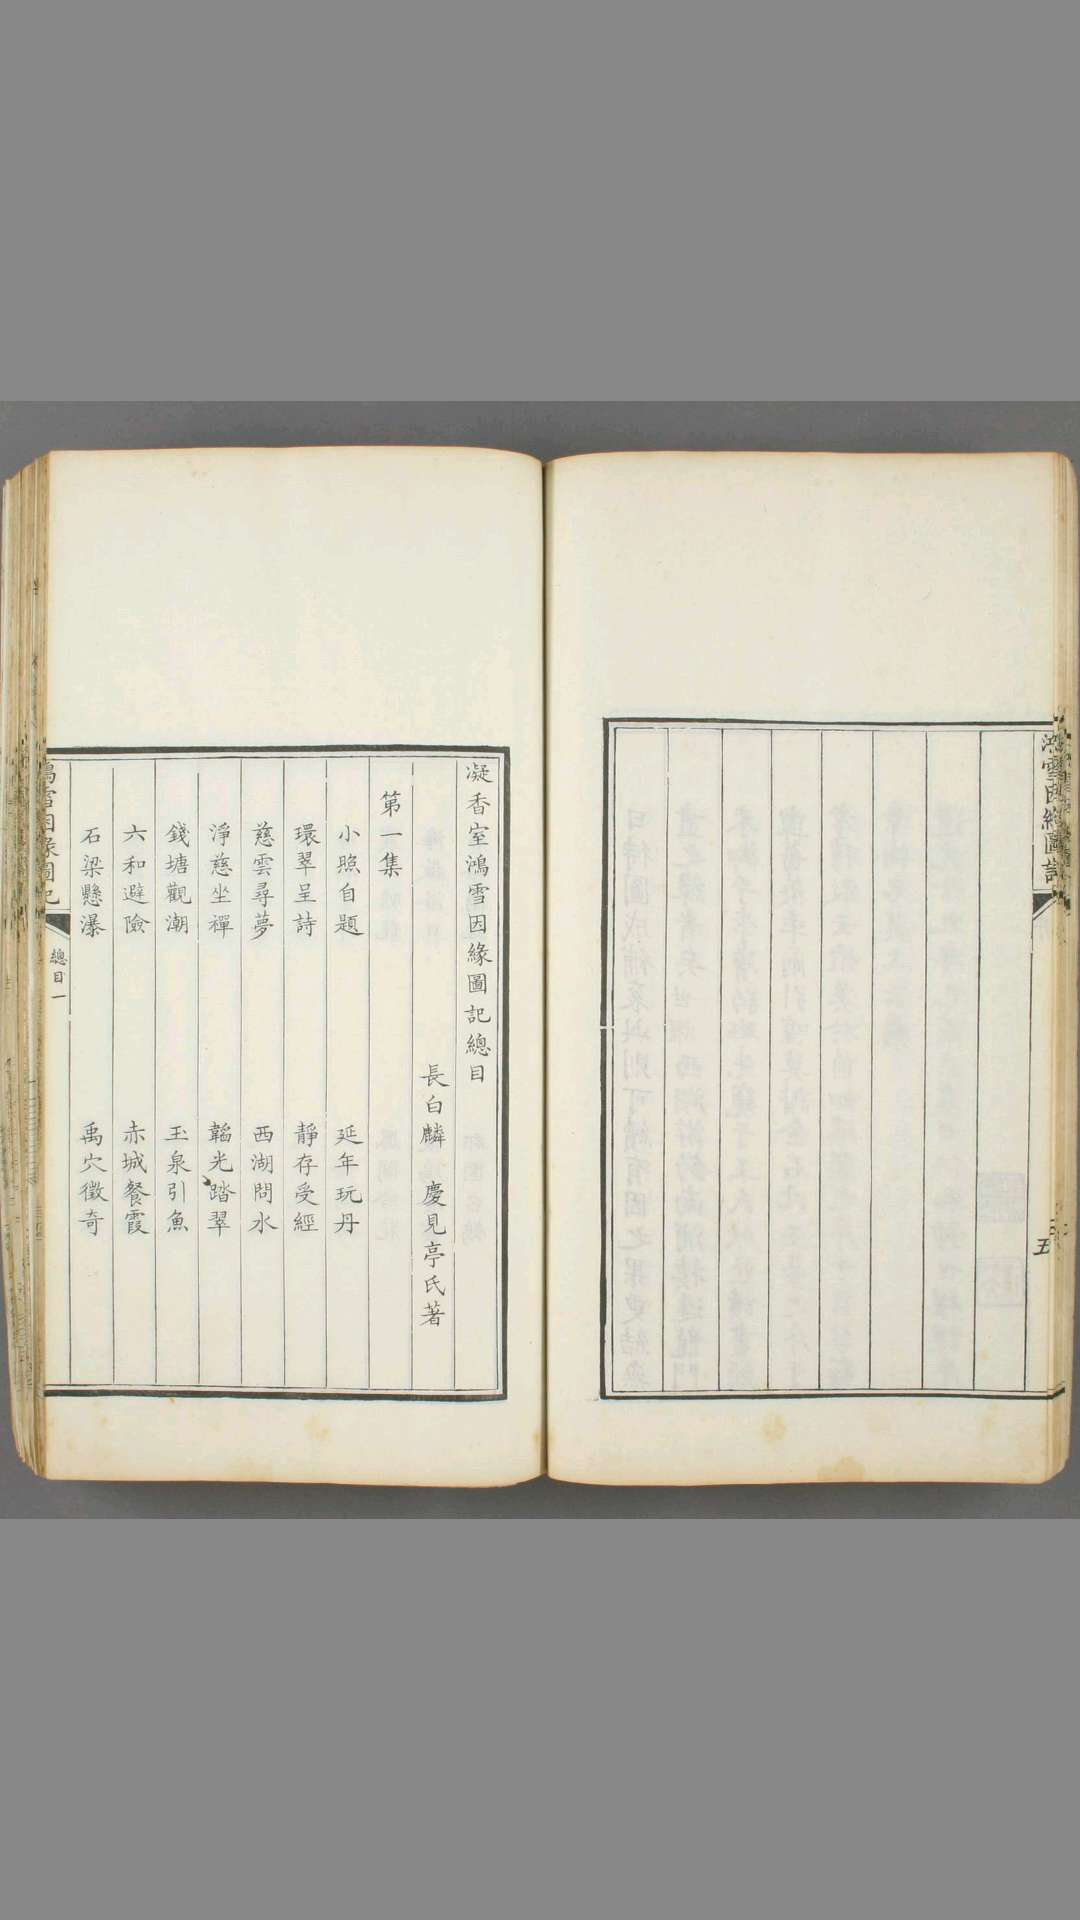 鴻雪因緣圖記
五
凝香室鴻雪因緣圖記總目
長白麟慶見亭氏著
第一集
小照自題 延年玩丹
環翠呈詩 靜存受經
慈雲尋夢 西湖問水
淨慈坐禪 韜光踏翠
錢塘觀潮 玉泉引魚
六和避險 赤城餐霞
石梁懸瀑 禹穴徵奇
鴻雪因緣圖記
總目一